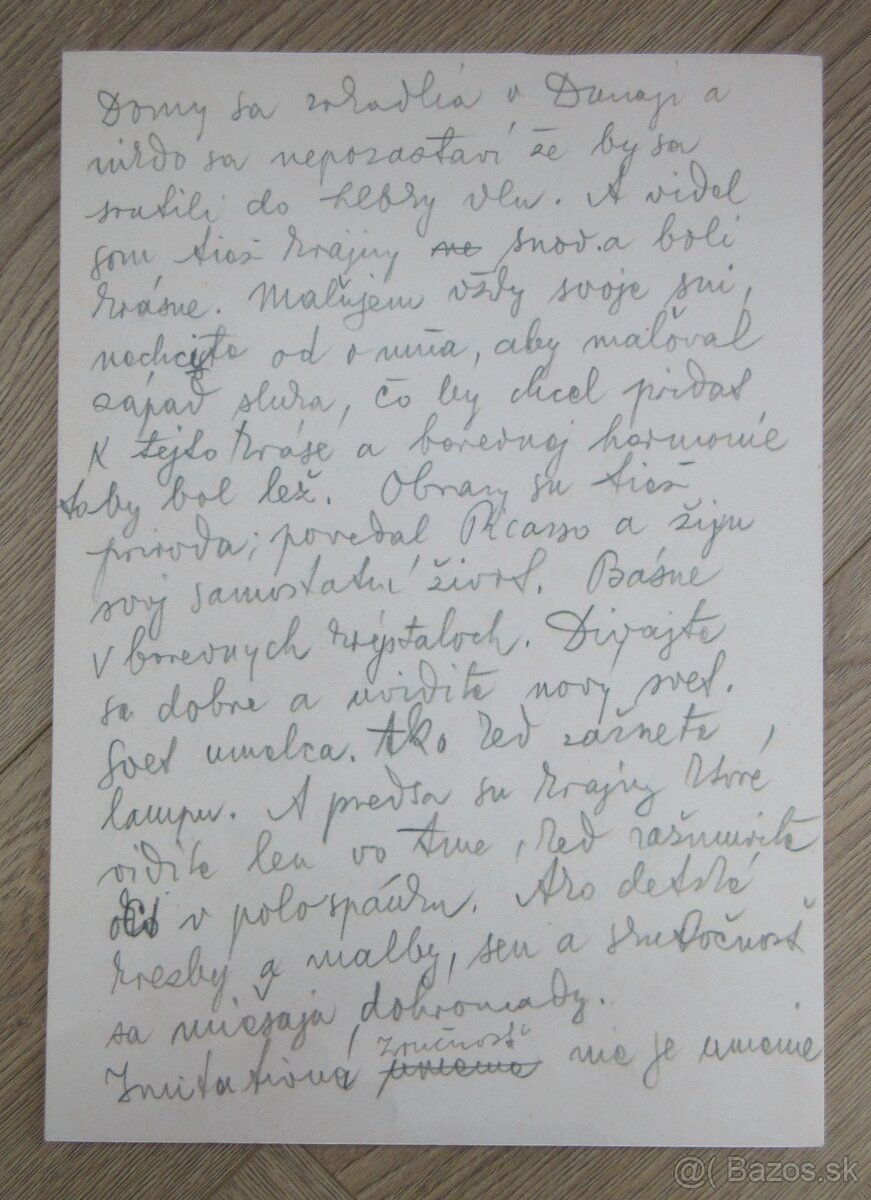 Domy sa zrkadlia v Dunaji a
nikdo sa nepozastaví že by sa
srutili do hlbky vln. A videl
som tiež krajiny ne snov. a boli
krásne. Maľujem vždy svoje sni,
nechcite od omňa, aby maľoval
západ slnka, čo by chcel pridat
K tejto kráse a barevnoj harmonie
toby bol lež. Obrazy su tiež
priroda; povedal Picasso a žiju
svoj samostatní život. Básne
v barevnych krýstaloch. Divajte
sa dobre a uvidite novy svet.
Svet umelca. Ako keď zažnete,
lampu. A predsa su krajiny ktoré
vidite len vo tme, keď zažmurite
oči v polospánku. Ako detské
kresby a malby, sen a skutočnosť
sa miešaja dohromady.
zručnosť
Imitativná umenie nie je umenie
@( Bazos.sk